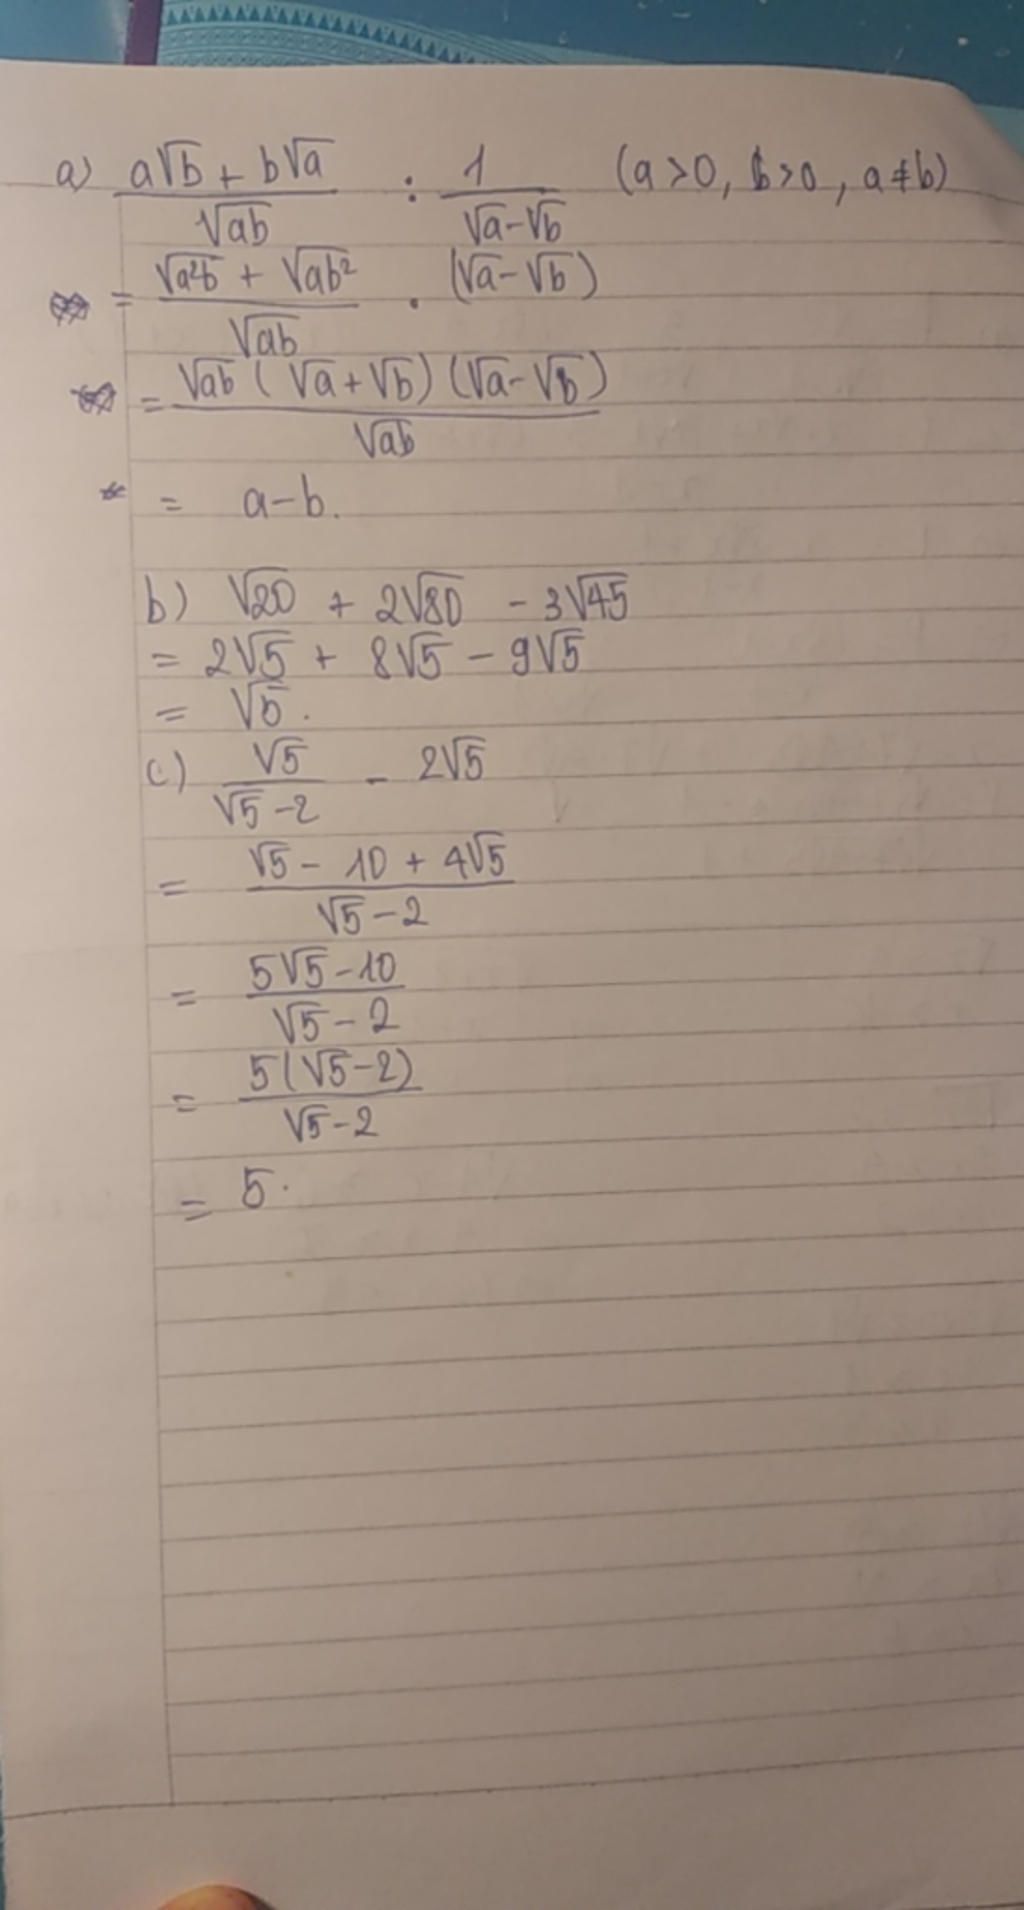 a) a√b + b√a / √ab : 1 / √a-√b (a>0, b>0, a≠b)
= √a²b + √ab² / √ab . (√a-√b)
= √ab (√a+√b) (√a-√b) / √ab
= a-b.
b) √20 + 2√80 - 3√45
= 2√5 + 8√5 - 9√5
= √5.
c) √5 / √5-2 - 2√5
= √5 - 10 + 4√5 / √5-2
= 5√5-10 / √5-2
= 5(√5-2) / √5-2
= 5.